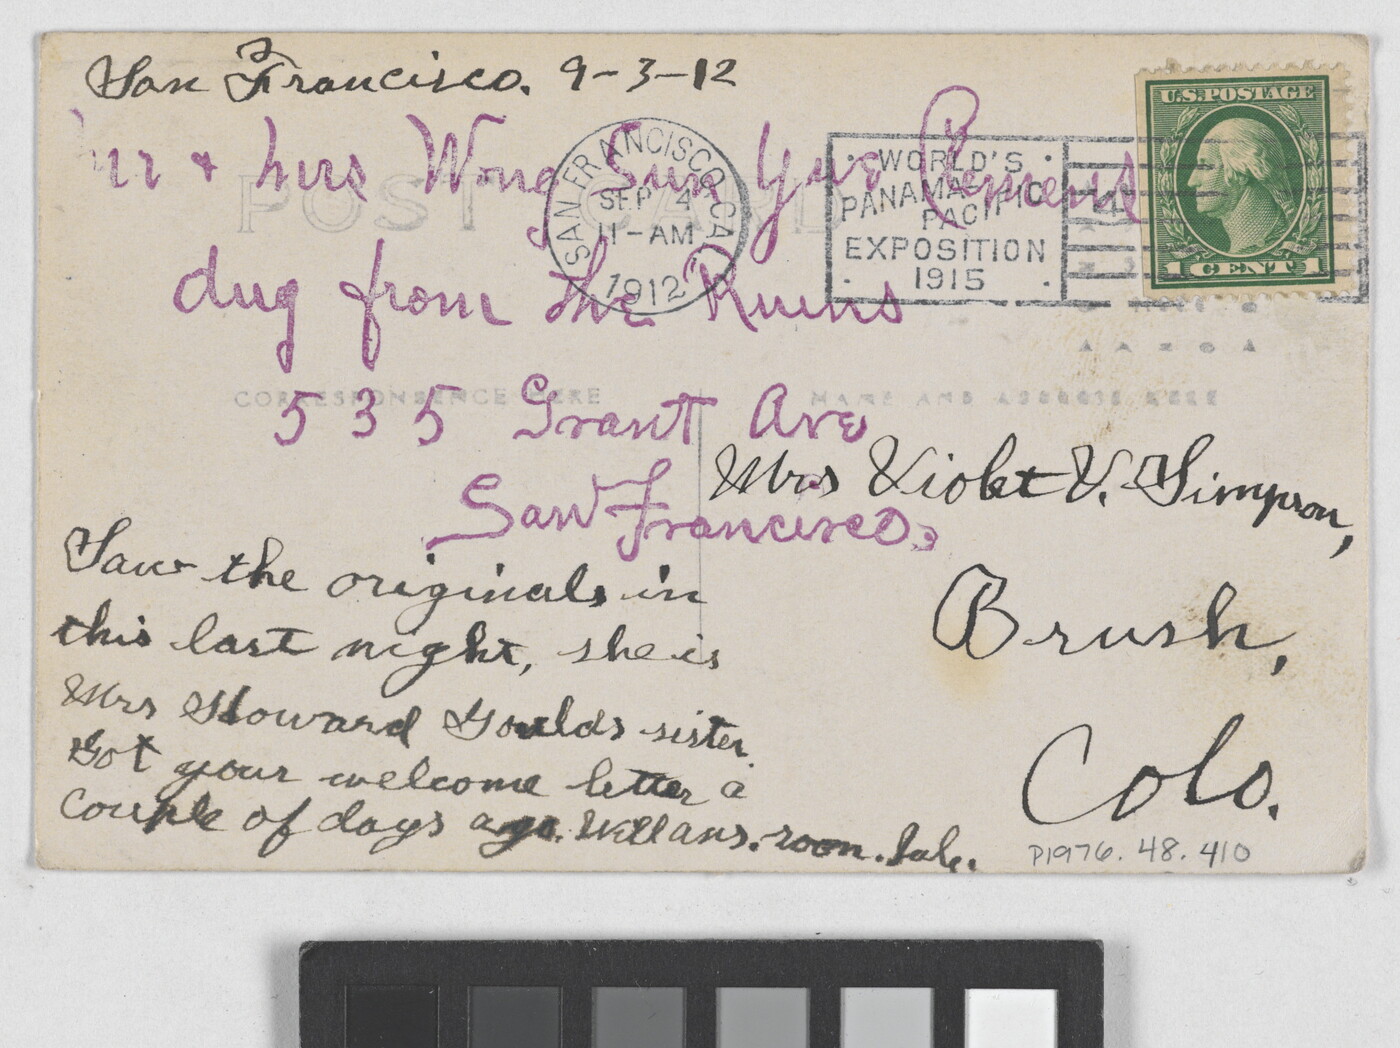 San Francisco. 9-3-12
Mr & Mrs Wong Sun Yue Clemens
dug from the Ruins
535 Grant Ave
San Francisco.
POST CARD
SAN FRANCISCO, CA.
SEP 4
11-AM
1912
WORLD'S
PANAMA-PACIFIC
EXPOSITION
1915
U.S. POSTAGE
1 CENT 1
CORRESPONDENCE HERE
NAME AND ADDRESS HERE
Mrs Violet V. Simpson,
Brush,
Colo.
Saw the originals in
this last night, she is
Mrs Howard Goulds sister.
Got your welcome letter a
couple of days ago. Will ans. soon.
P1976.48.410